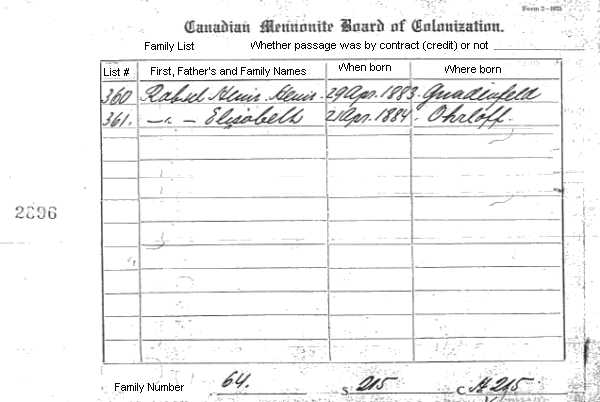 Form 2—1923
Canadian Mennonite Board of Colonization.
Family List Whether passage was by contract (credit) or not
List # First, Father's and Family Names When born Where born
360 29 Apr. 1883. Gnadenfeld
361. —„— Elisabeth 2 Apr. 1884. Ohrloff.
2896
Family Number 64. S 215 C A 215